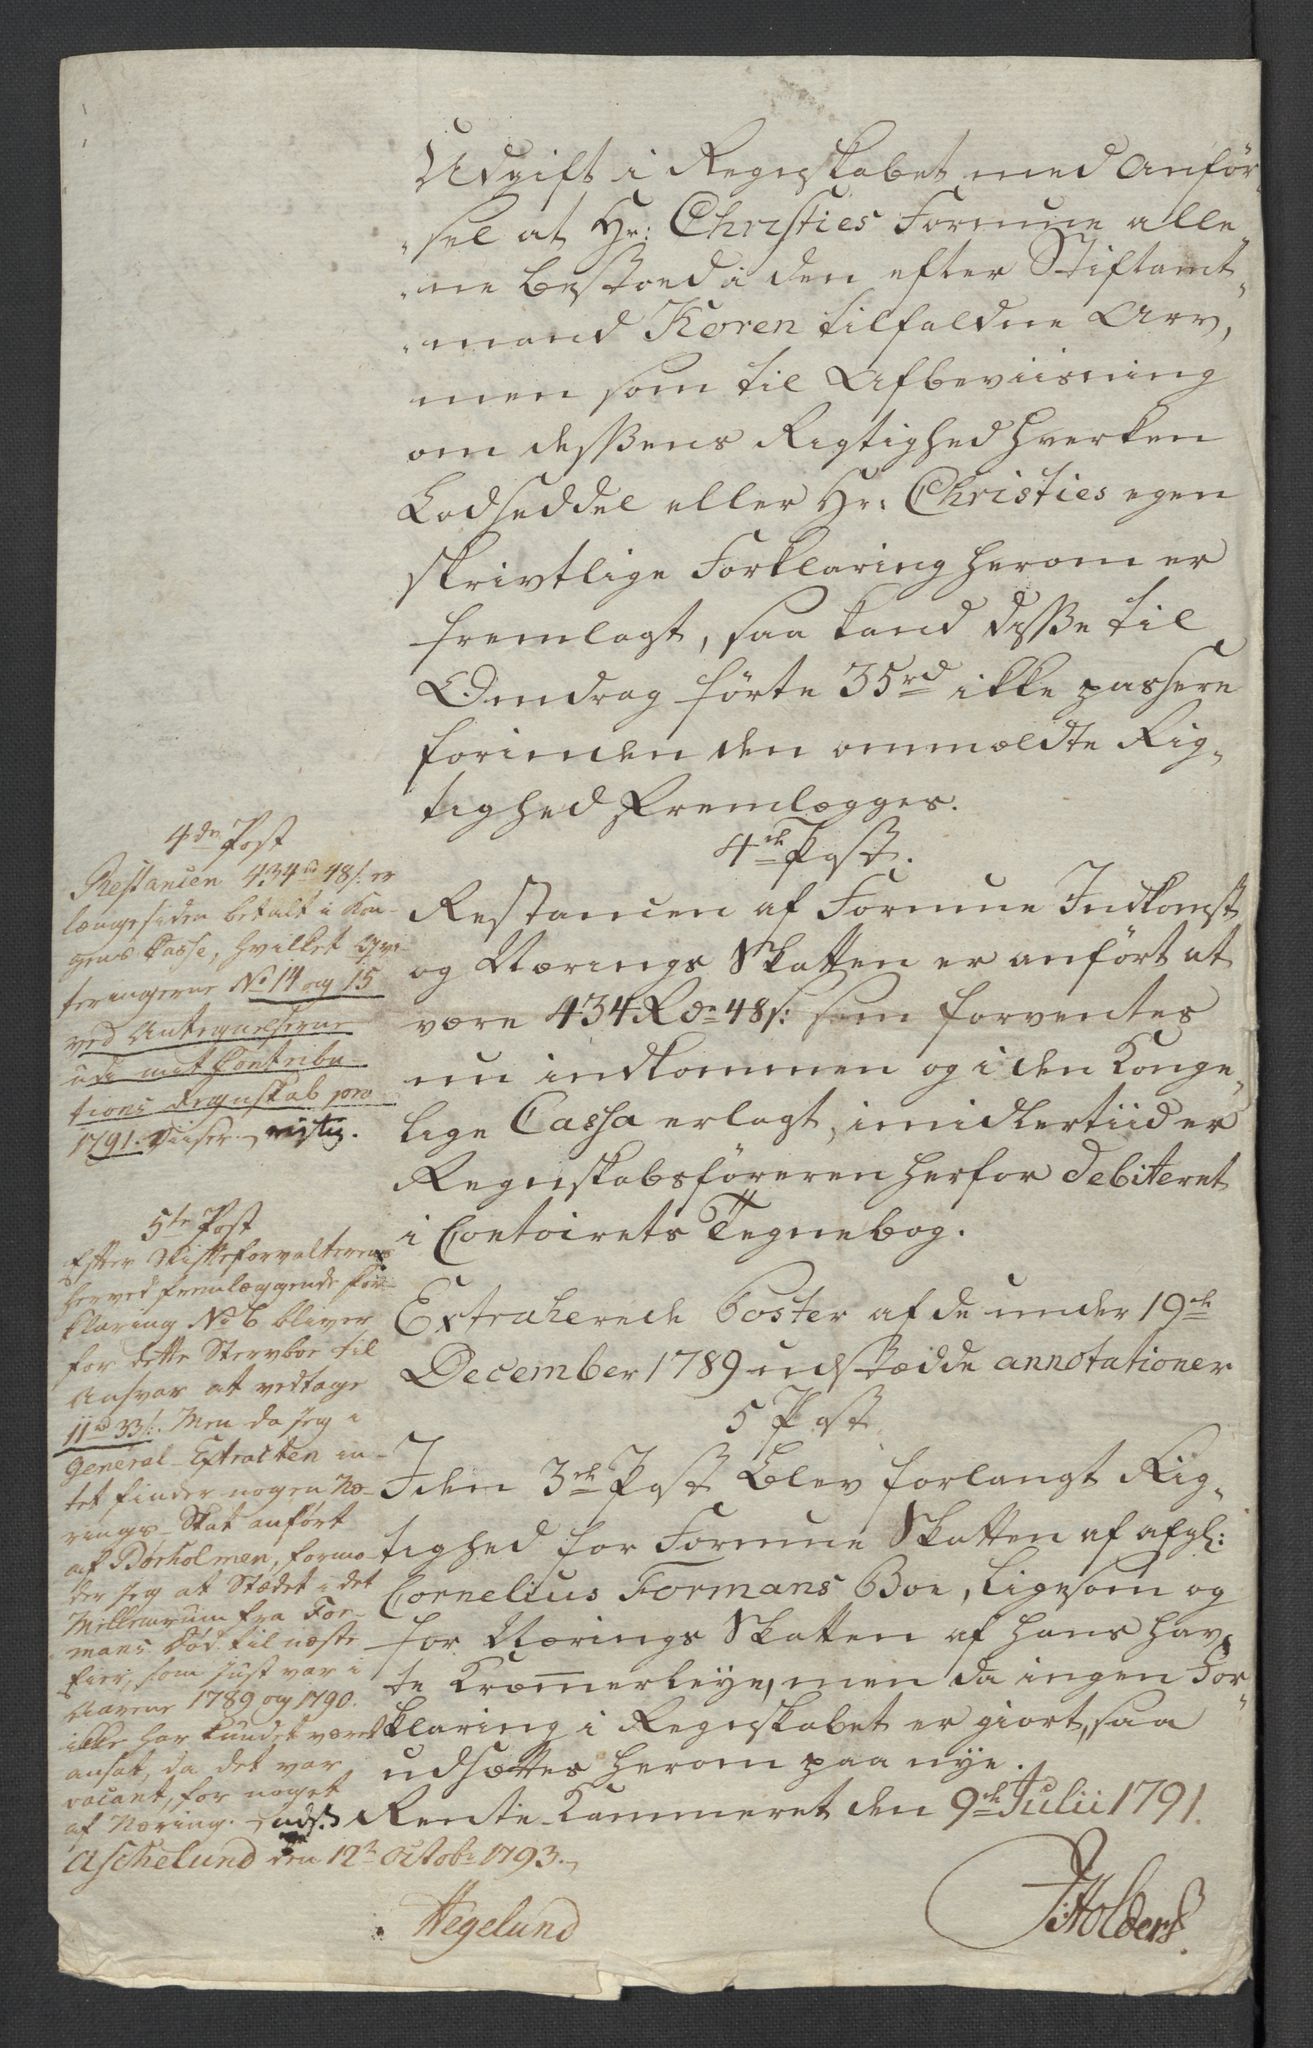 Udgift i Regnskabet med Anför-
sel at Hr: Christies Formue alle-
ne bestoed i den efter Stiftamt-
mand Koren tilfaldne Arv,
men som til Afbeviisning
om desßens Rigtighed hverken
Lodseddel eller Hr: Christies egen
skrivtlige Forklaring herom er
fremlagt, saa kand disße til
Omdrag förte 35rd ikke passere
forinden den ommældte Rig-
tighed fremlægges.
4de Post.
Restancen af Formue Indkomst
og Nærings Skatten er anfört at
være 434 Rdr 48s: som forventes
nu indkommen og i den Konge-
lige Cassa erlagt, imidlertiid er
Regnskabsföreren herfor debiteret
i Contoirets Tegnebog.
Extraherede Poster af de under 19de
December 1789 udstædde annotationer
5 Post
I den 3de Post blev forlangt Rig-
tighed for Formue Skatten af afgl:
Cornelius Formans Boe, ligesom og
for Nærings Skatten af hans hav-
te Kræmerleye, men da ingen For-
klaring i Regnskabet er giort, saa
udsættes herom paa nye.
Rente Kammeret den 9de Julii 1791.
JHolders.
4de Post
Restancen 434rd 48s. er
længesiden betalt i Kon-
gens Casse, hvilket Qvi-
teringerne No 14 og 15
ved Antegnelserne
udi mit Contribu-
tions Regnskab pro
1791. viiser. rigtig.
5te Post
Efter Skifteforvalterens
herved fremlæggende For-
klaring No 6 bliver
for dette Stervboe til
Ansvar at vedtage
11rd 33s. Men da jeg i
General-Extracten in-
tet finder nogen Næ-
rings-Skat anfört
af Børholmen, formo-
der jeg at Stædet i det
Mellemrum fra For-
mans Död til næste
Eier, som just var i
Aarene 1789 og 1790.
ikke har kundet været
ansat, da det var
vacant, for noget
af Næring. uds.
Aschelund den 12te Octobr 1793.
Hegelund